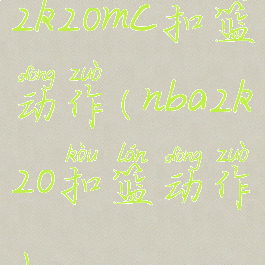 2k20mc扣篮
dòng zuò
动作(nba2k
kòu lán dòng zuò
20扣篮动作
)